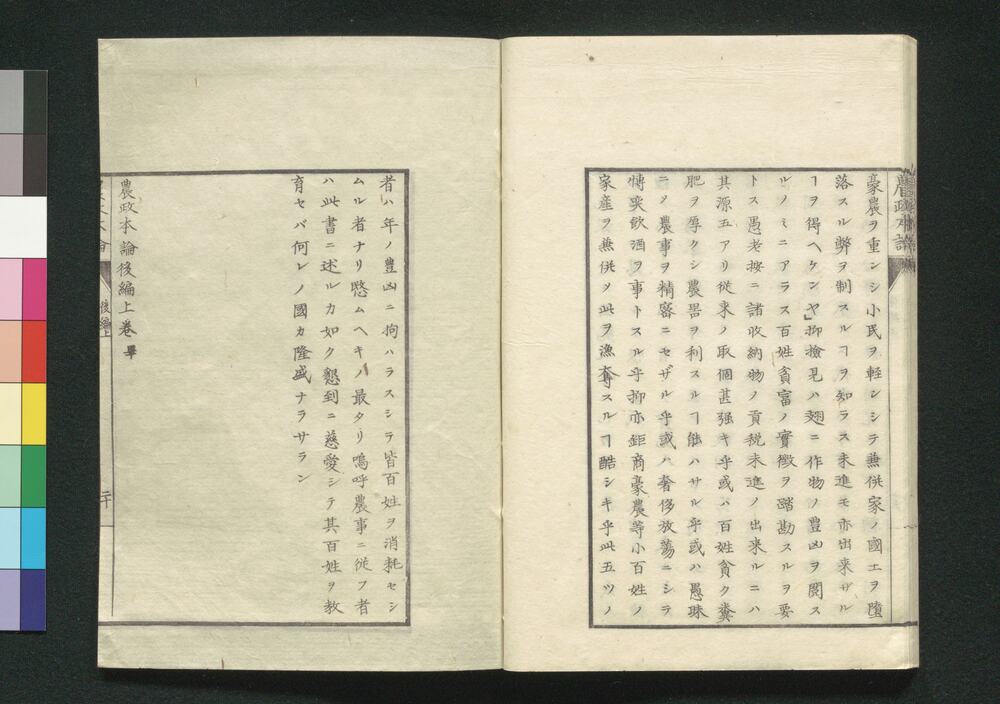 農政本論
豪農ヲ重ンシ小民ヲ輕ンシラ兼併家ノ國土ヲ墮
落スル弊ヲ制スルヿヲ知ラス未進モ亦出来ザル
ヿヲ得ヘケンヤ」抑撿見ハ翅ニ作物ノ豊凶ヲ閲ス
ルノミニアラス百姓貪富ノ實徴ヲ踏勘スルヲ要
トス愚老按ニ諸收納物ノ貢税未進ノ出来ルニハ
其源五アリ従来ノ取個甚强キ乎或ハ百姓貪ク糞
肥ヲ厚クシ農畧ヲ利スルヿ能ハサル乎或ハ愚昧
ニメ農事ヲ精密ニセザル乎或ハ奢侈放蕩ニシラ
愽奕飲酒ヲ事トスル乎抑亦鉅商豪農等小百姓ノ
家産ヲ兼併メ此ヲ漁奪スルヿ酷シキ乎此五ツノ
者ハ年ノ豊凶ニ拘ハラスシラ皆百姓ヲ消耗セシ
ムル者ナリ愍ムヘキノ最タリ嗚呼農事ニ従フ者
ハ此書ニ述ルカ如ク懇到ニ慈愛シテ其百姓ヲ教
育セバ何レノ國カ隆盛ナラサラン
農政本論後編上巻畢
後編上
二十